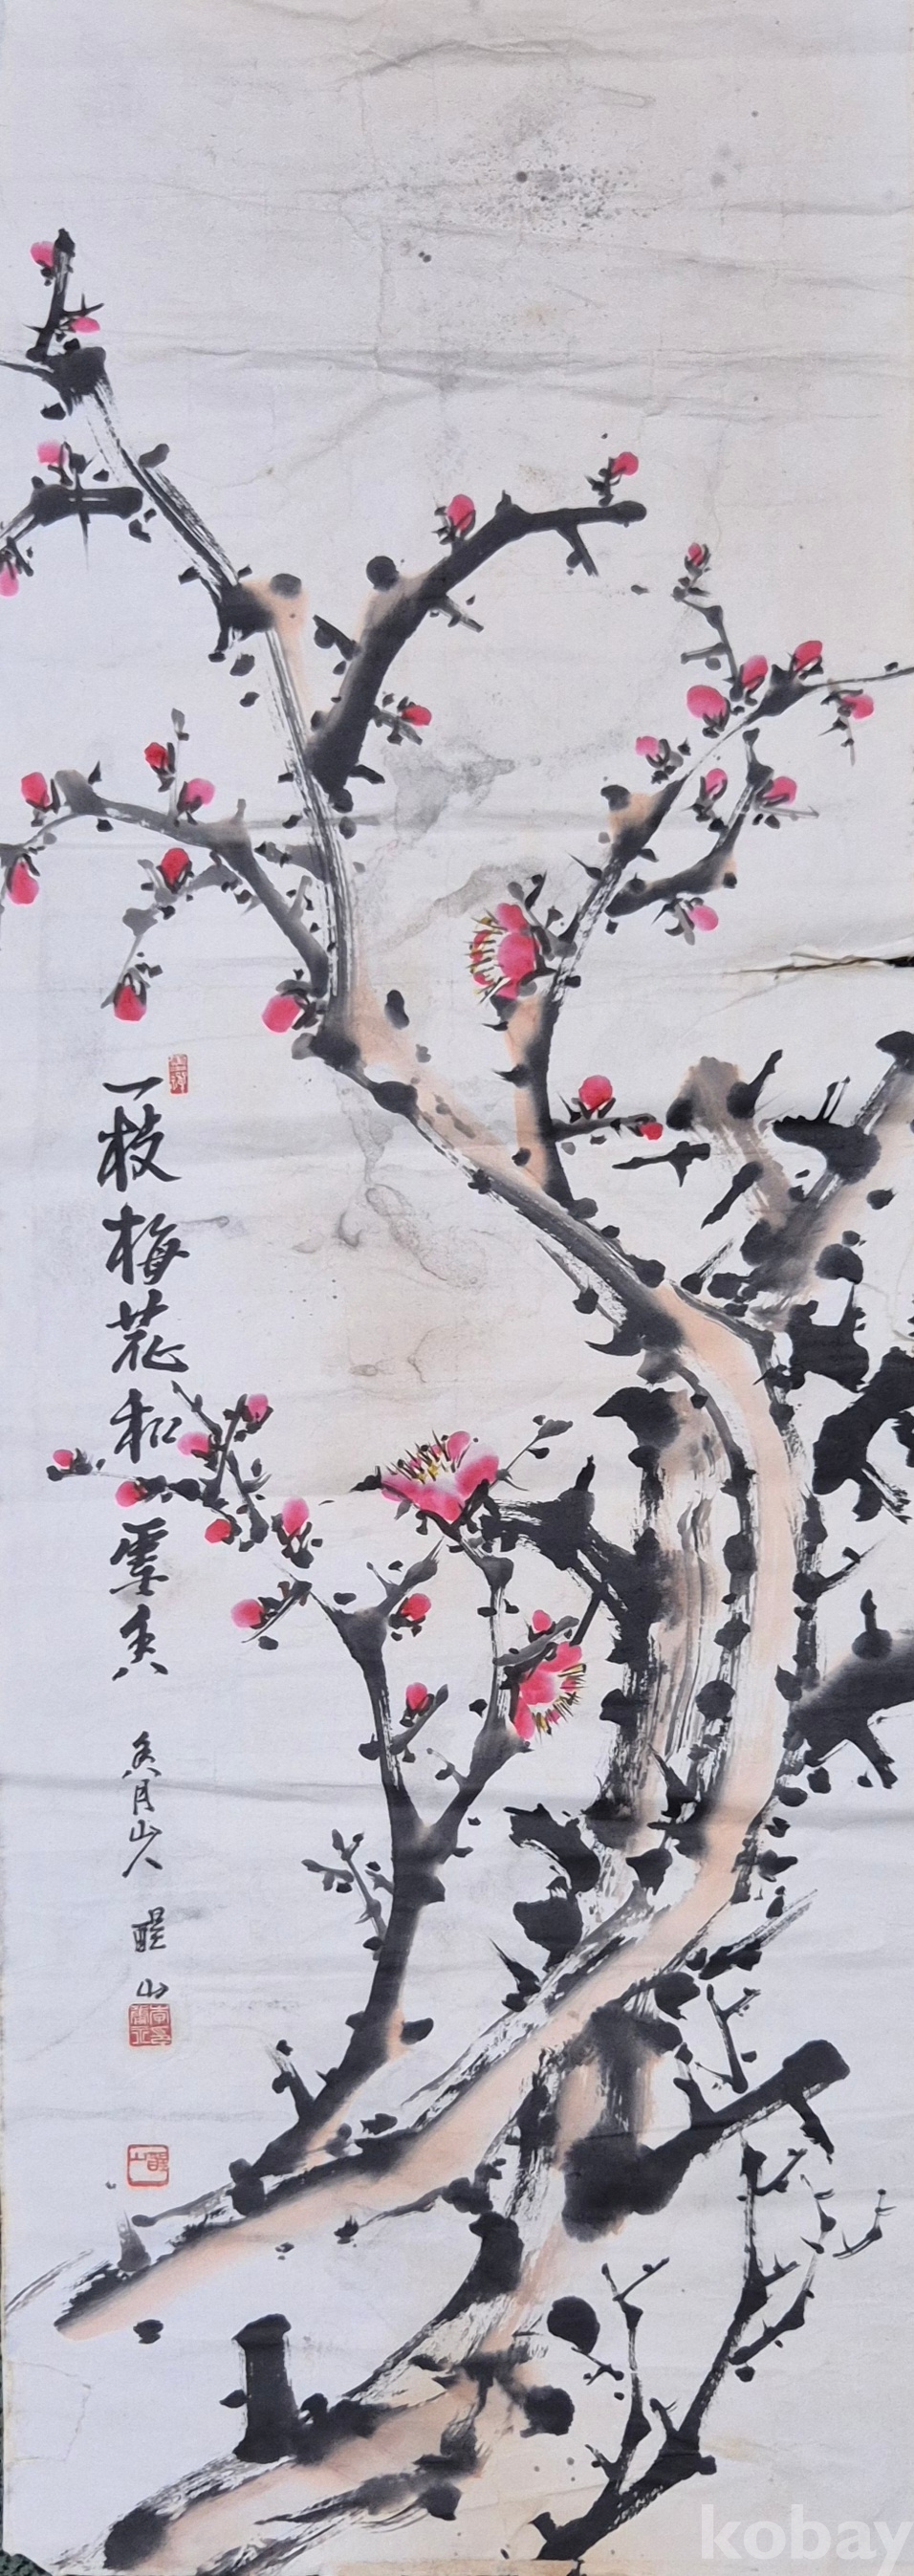 一枝梅花和雪香
香月山人
醒山
kobay